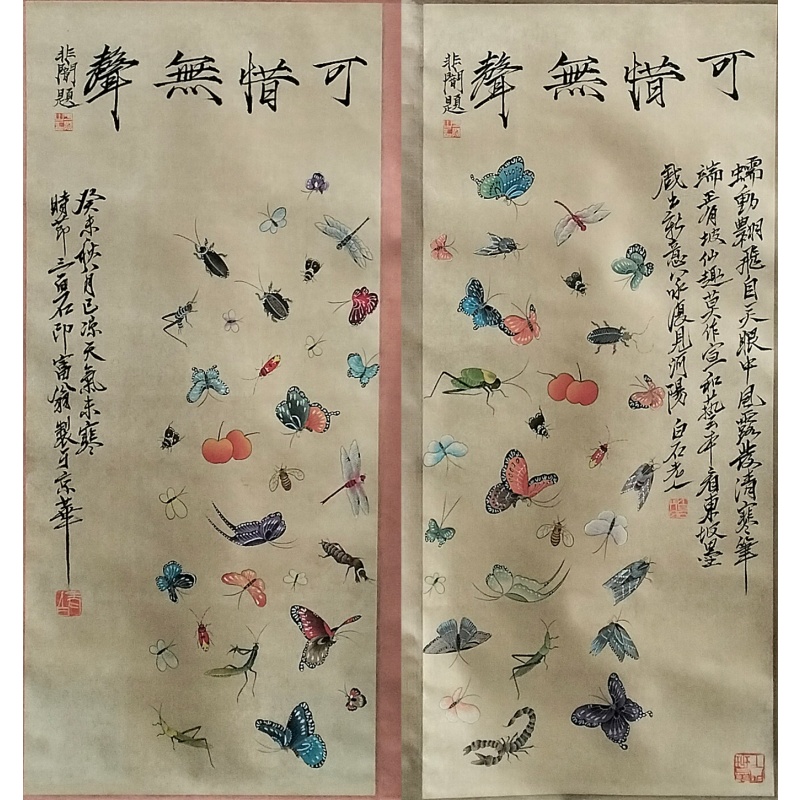 可惜無聲
非闇題
癸未秋八月已凉天氣未寒
時節三百石印富翁製于京華
可惜無聲
非闇題
蠕動翾飛自天眼中風露發清寒筆
端若有坡仙趣莫作宣和藝
看東坡墨
戲出新意
復見河陽 白石老人